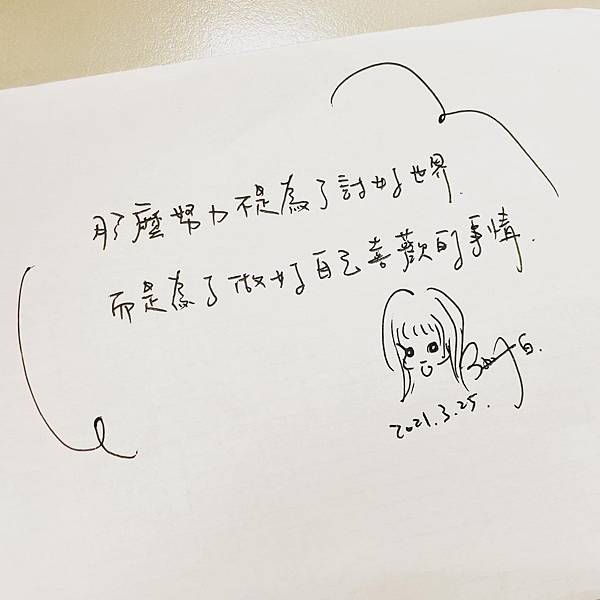 那麼努力不是為了討好世界.
而是為了做好自己喜歡的事情.
2021.3.25.